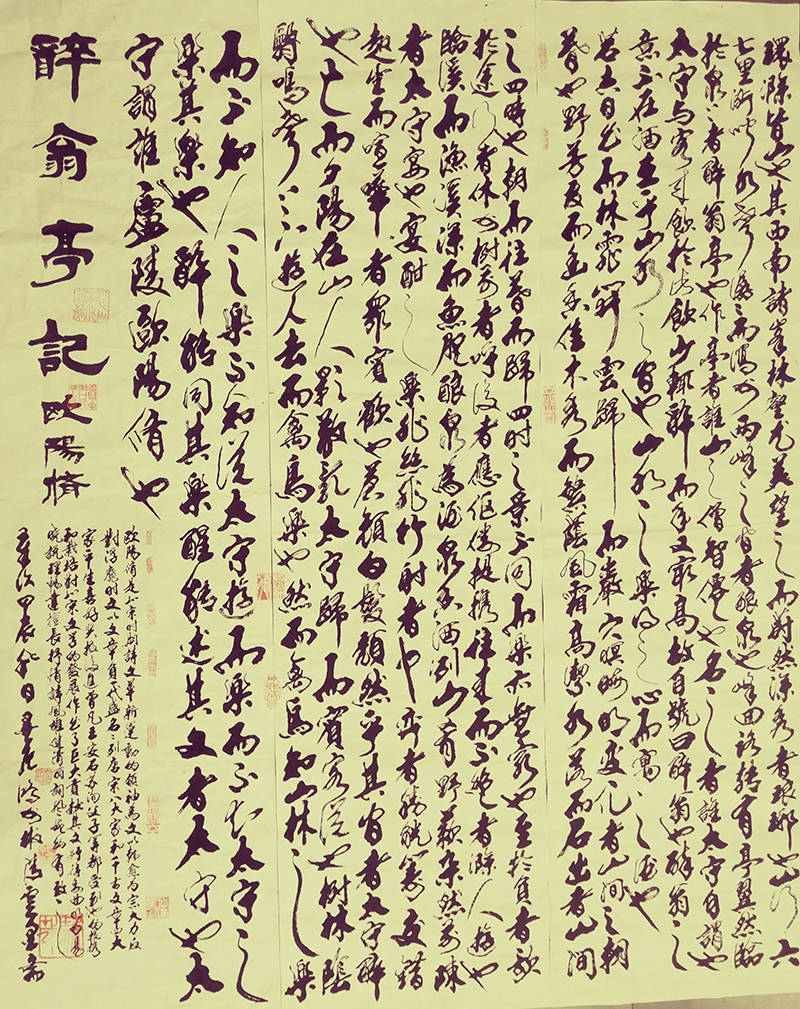 環滁皆山也其西南諸峯林壑尤美望之而蔚然深秀者琅琊也山行六
七里漸聞水聲潺潺而瀉於兩峰之間者釀泉也峰回路轉有亭翼然臨
於泉上者醉翁亭也作亭者誰山之僧智僊也名之者誰太守自謂也
太守与客来飲於此飲少輒醉而年又最高故自號曰醉翁也醉翁之
意不在酒在乎山水之間也山水之樂得之心而寓之酒也
若夫日出而林霏開雲歸而巖穴暝晦明变化者山间之朝
暮也野芳发而幽香佳木秀而繁蔭風霜高潔水落而石出者山間
之四時也朝而往暮而歸四时之景不同而樂亦無窮也至於負者歌
於途行者休於樹前者呼後者應伛偻提攜往来而不绝者滁人遊也
臨溪而漁溪深而魚肥釀泉為酒泉香而酒冽山肴野蔌杂然而前陳
者太守宴也宴酣之樂非丝非竹射者中弈者勝觥籌交錯
起坐而喧嘩者眾賓歡也蒼顏白髮頹然乎其間者太守醉
也已而夕陽在山人影散亂太守歸而賓客從也樹林陰
翳鳴聲上下遊人去而禽鳥樂也然而禽鳥知山林之樂
而不知人之樂人知從太守遊而樂而不知太守之
樂其樂也醉能同其樂醒能述其文者太守也太
守謂誰廬陵歐陽脩也
醉翁亭記 歐陽脩
歐陽脩是北宋时期詩文革新運動的領袖為文以韩愈為宗大力反
對浮靡时文以文章負一代盛名
家平生喜好奖掖後進曾巩王安石苏洵父子
和栽培對北宋文学的發展作出了巨大貢献其文
歲次甲辰秋日